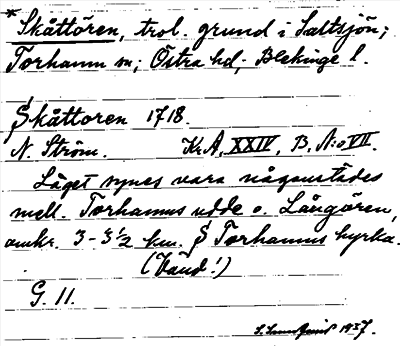 *Skåttören, trol. grund i Saltsjön;
Torhamn sn; Östra hd; Blekinge l.
Skåttoren 1718.
N. Ström. Kr.A, XXIV, B, N:o VII.
Läget synes vara någonstädes
mell. Torhamns udde o. Långören,
omkr. 3-3½ km. S Torhamns kyrka.
(Vånd!)
G. 11.
1937.